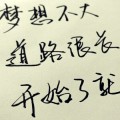 梦想不大
道路很长
开始了就